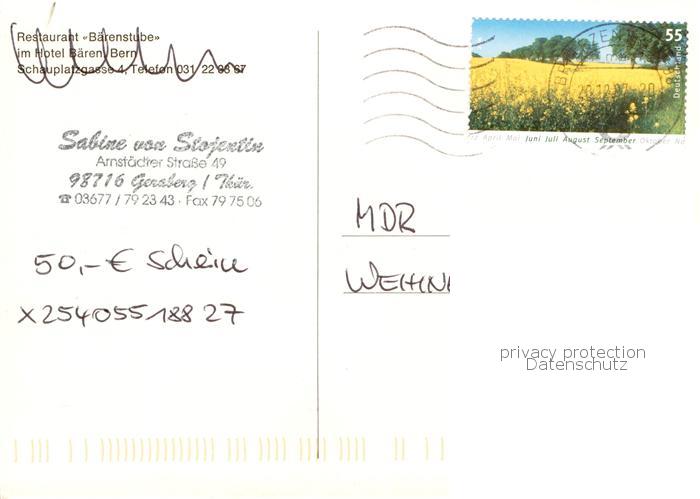 Restaurant «Bärenstube»
im Hotel Bären, Bern
Schauplatzgasse 4, Telefon 031 22 33 67
Sabine von Stojentin
Arnstädter Straße 49
98716 Geraberg / Thür.
☎ 03677 / 79 23 43 · Fax 79 75 06
50,- € Schein
X25405518827
55
Deutschland
April Mai Juni Juli August September Oktober No
MDR
WEIHN
privacy protection
Datenschutz